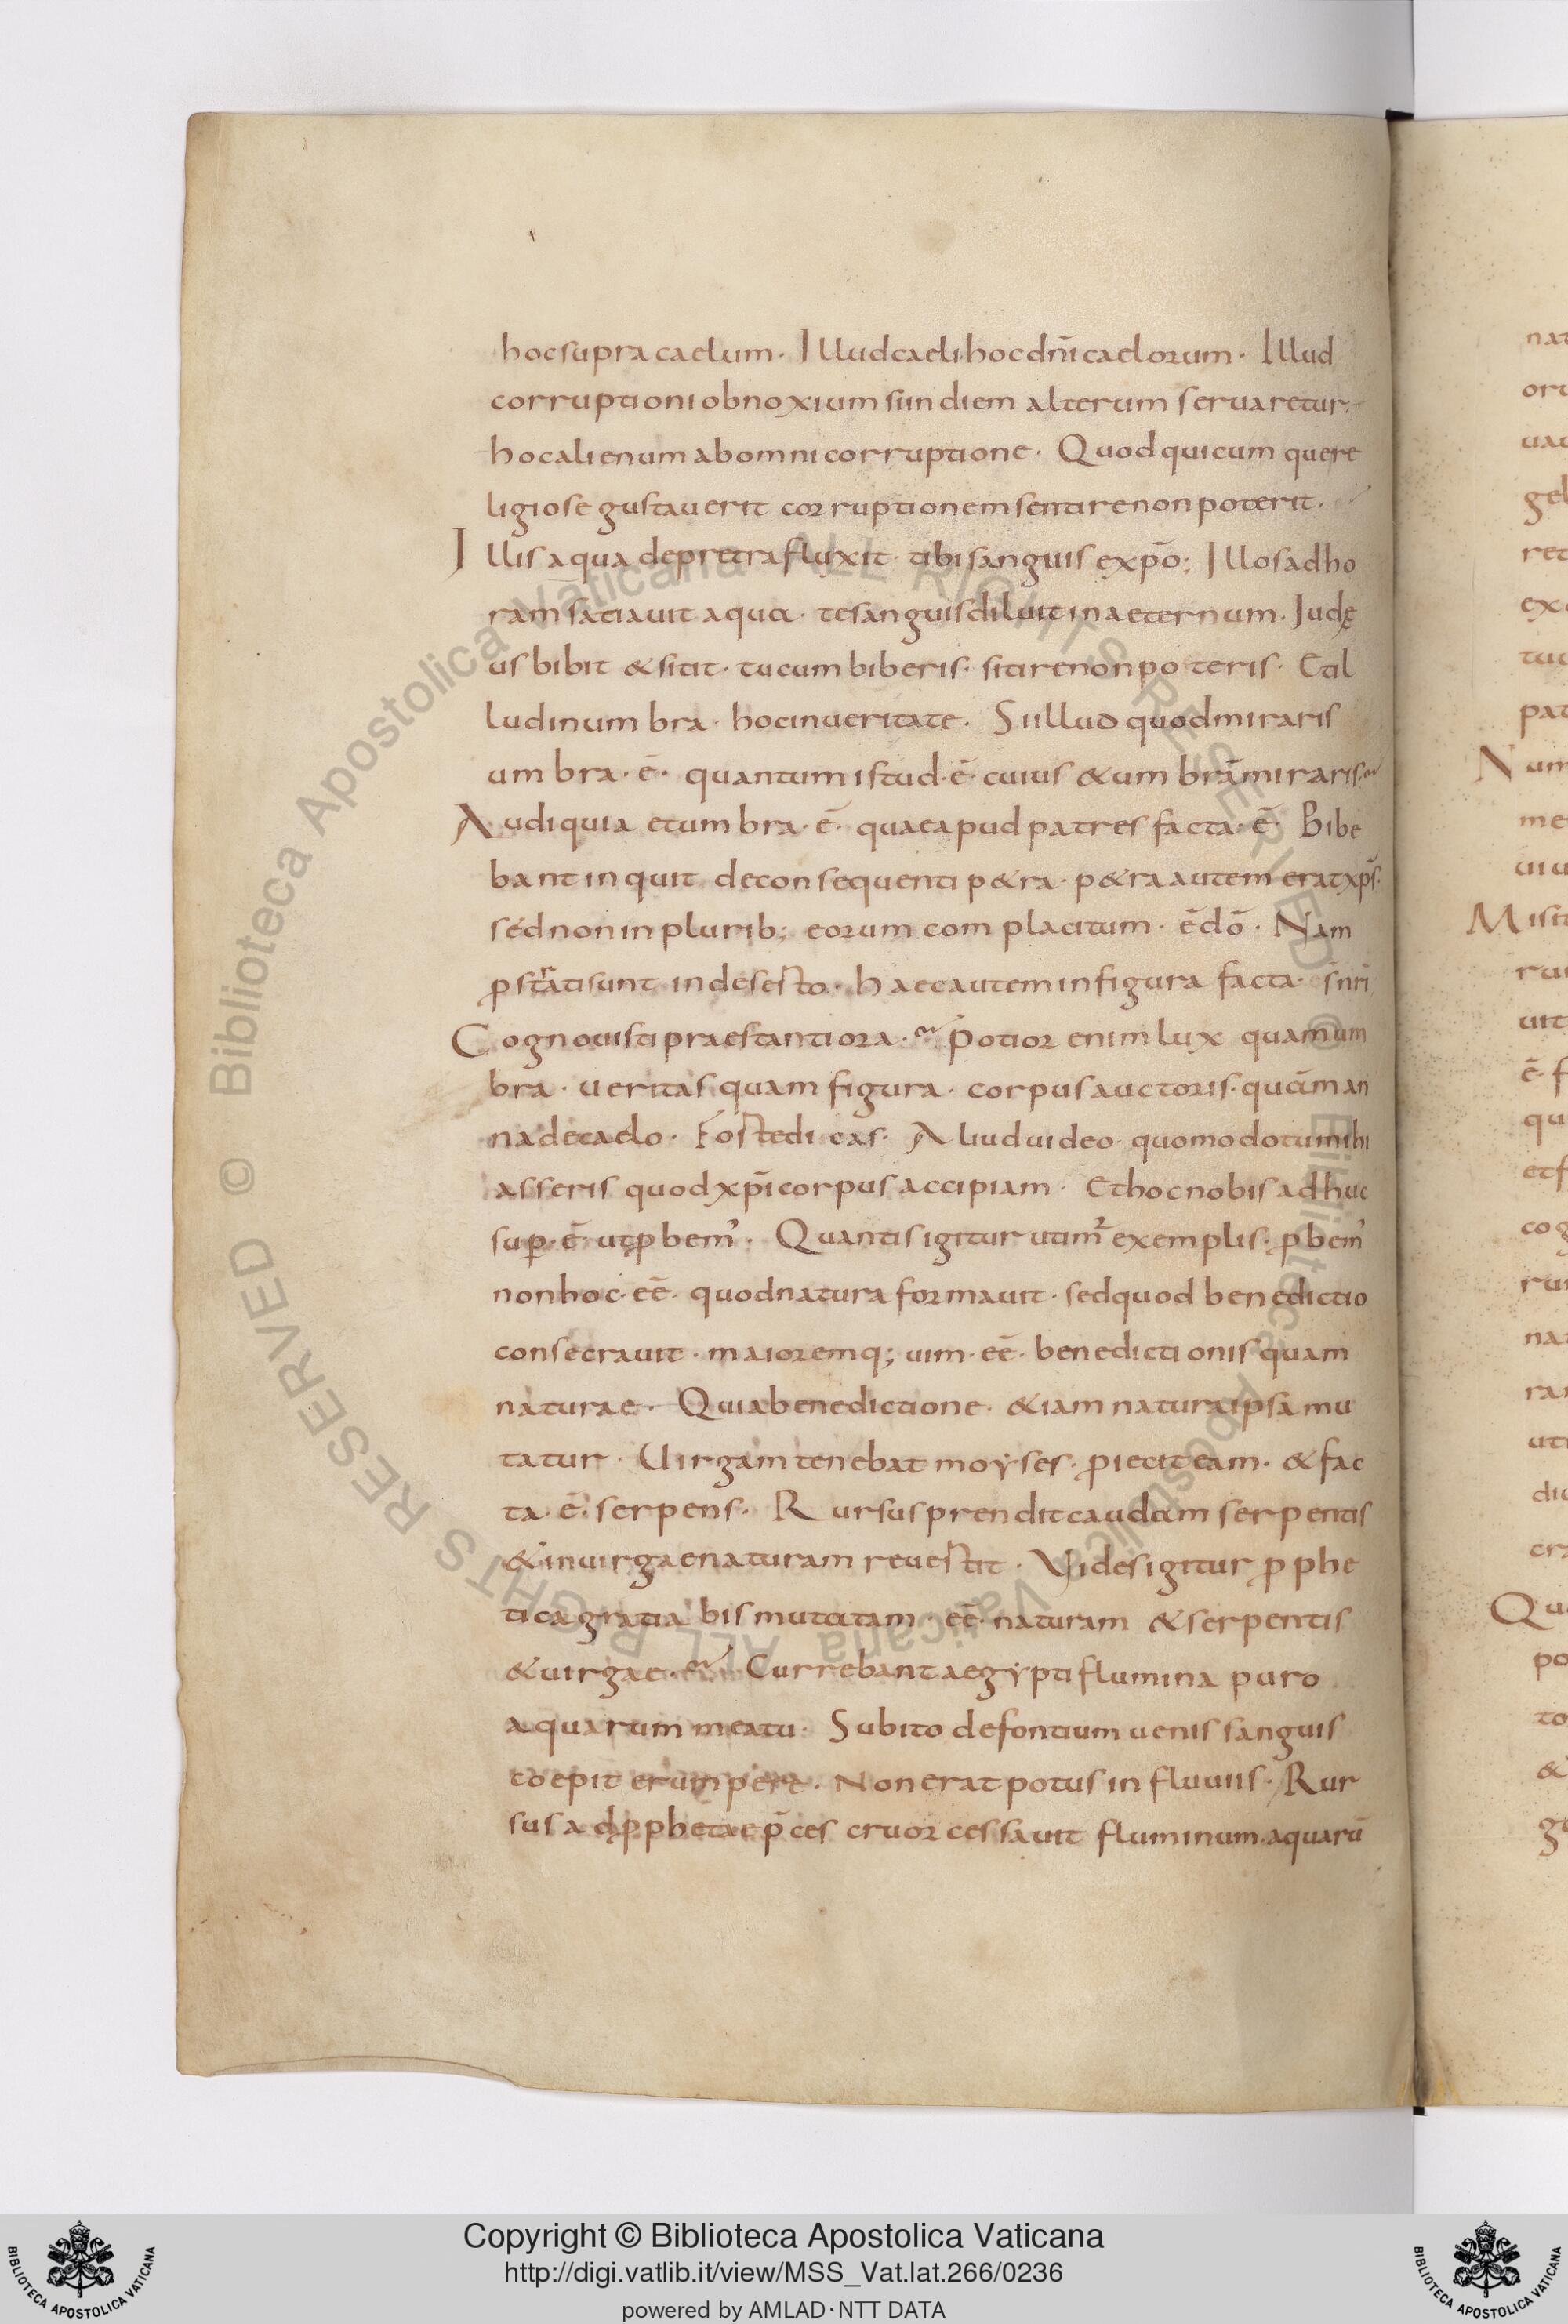 hoc supra caelum· Illud caeli· hoc dn̄i caelorum· Illud
corruptioni obnoxium si in diem alterum servaretur·
hoc alienum ab omni corruptione· Quod quicumque re
ligiose gustaverit corruptionem sentire non poterit·
Illis aqua de petra fluxit· tibi sanguis ex xp̄o; Illos ad ho
ram satiavit aqua· te sanguis diluit in aeternum· Judę
us bibit & sitit· tu cum biberis· sitire non poteris· Et il
lud in umbra· hoc in ueritate· Si illud quod miraris
umbra·ē· quantum istud·ē· cuius & umbrā miraris·
Audi quia et umbra·ē· quae apud patres facta·ē· Bibe
bant inquit de consequenti p&ra· p&ra autem erat xp̄s·
sed non in plurib; eorum complacitum·ē dō· Nam
ꝓstrati sunt in deserto· Haec autem in figura facta· s̄ nr̄i
Cognouisti praestantiora· Potior enim lux quam um
bra· ueritas quam figura· corpus auctoris· quam man
na de caelo· Forte dicas· Aliud uideo quomodo tu mihi
asseris quod xp̄i corpus accipiam· Et hoc nobis adhuc
suꝑ·ē· ut ꝓbem᾽· Quantis igitur utim᾽ exemplis· ꝓbem᾽
non hoc·eē· quod natura formauit· sed quod benedictio
consecrauit· maioremq; uim·eē· benedictionis quam
naturae· Quia benedictione· &iam natura ipsa mu
tatur· Uirgam tenebat moyses· ꝓiecit eam· & fac
ta·ē· serpens· Rursus prendit caudam serpentis
& in uirgae naturam reuestit· Vides igitur ꝓphe
tica gratia bis mutatam·eē· naturam & serpentis
& uirgae· Currebant aegypti flumina puro
aquarum meatu· Subito de fontium uenis sanguis
coepit erumpere· Non erat potus in fluuiis· Rur
sus ad ꝓphetae p̄ces cruor cessauit fluminum· aquarū
Copyright © Biblioteca Apostolica Vaticana
http://digi.vatlib.it/view/MSS_Vat.lat.266/0236
powered by AMLAD·NTT DATA